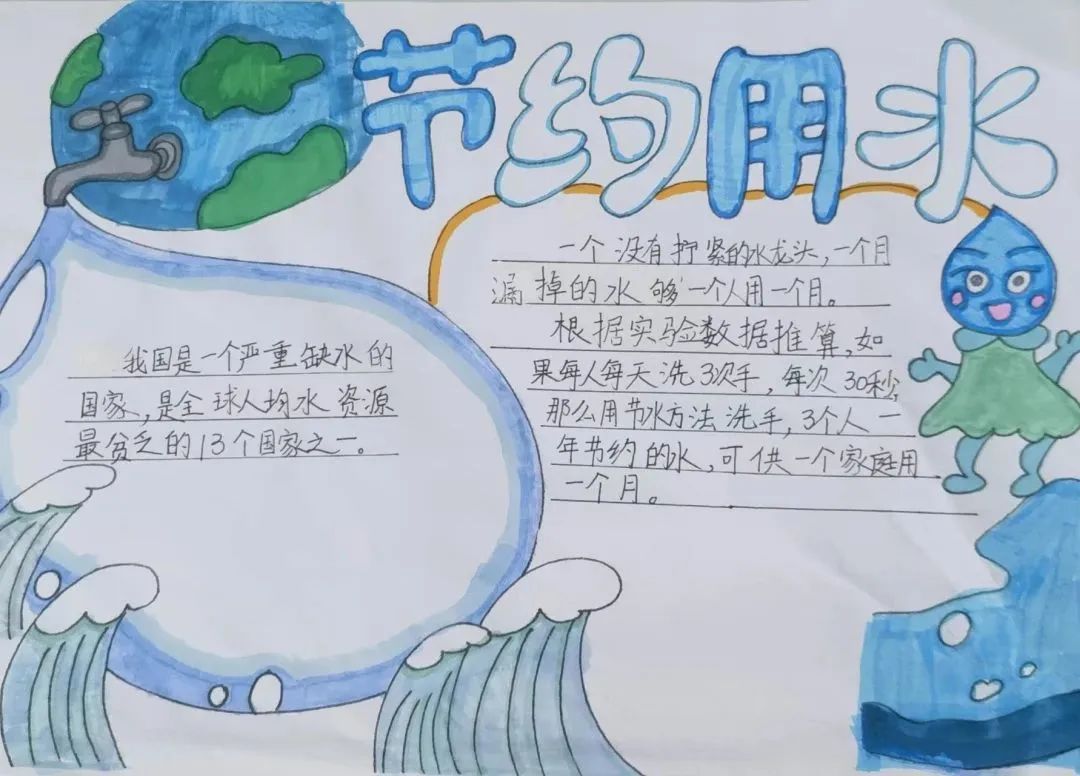 节约用水
我国是一个严重缺水的
国家,是全球人均水资源
最贫乏的13个国家之一。
一个没有拧紧的水龙头,一个月
漏掉的水够一个人用一个月。
根据实验数据推算,如
果每人每天洗3次手,每次30秒,
那么用节水方法洗手,3个人一
年节约的水,可供一个家庭用
一个月。